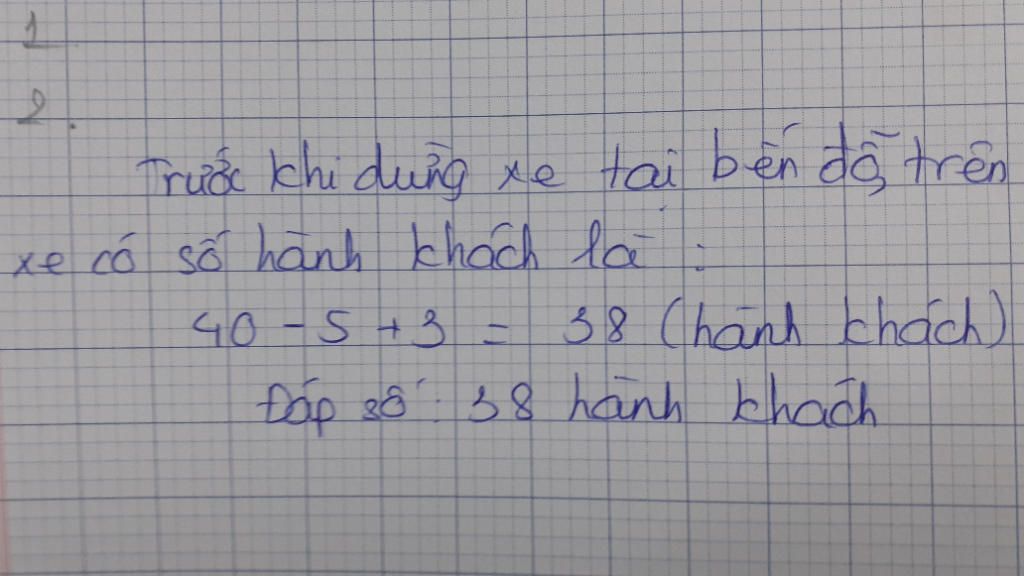 1
2.
Trước khi dừng xe tại bến đỗ trên
xe có số hành khách là :
40 - 5 + 3 = 38 (hành khách)
Đáp số : 38 hành khách